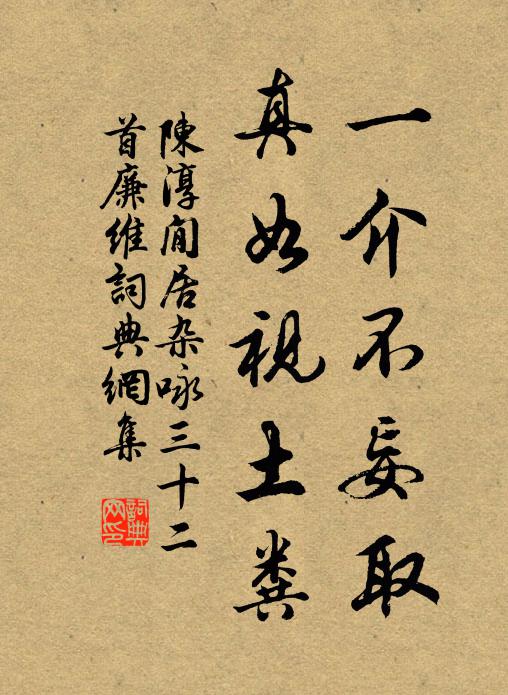 一介不妄取
真如視土糞
陳淳閒居杂咏三十二
首廉維詞典網集
詞典網印